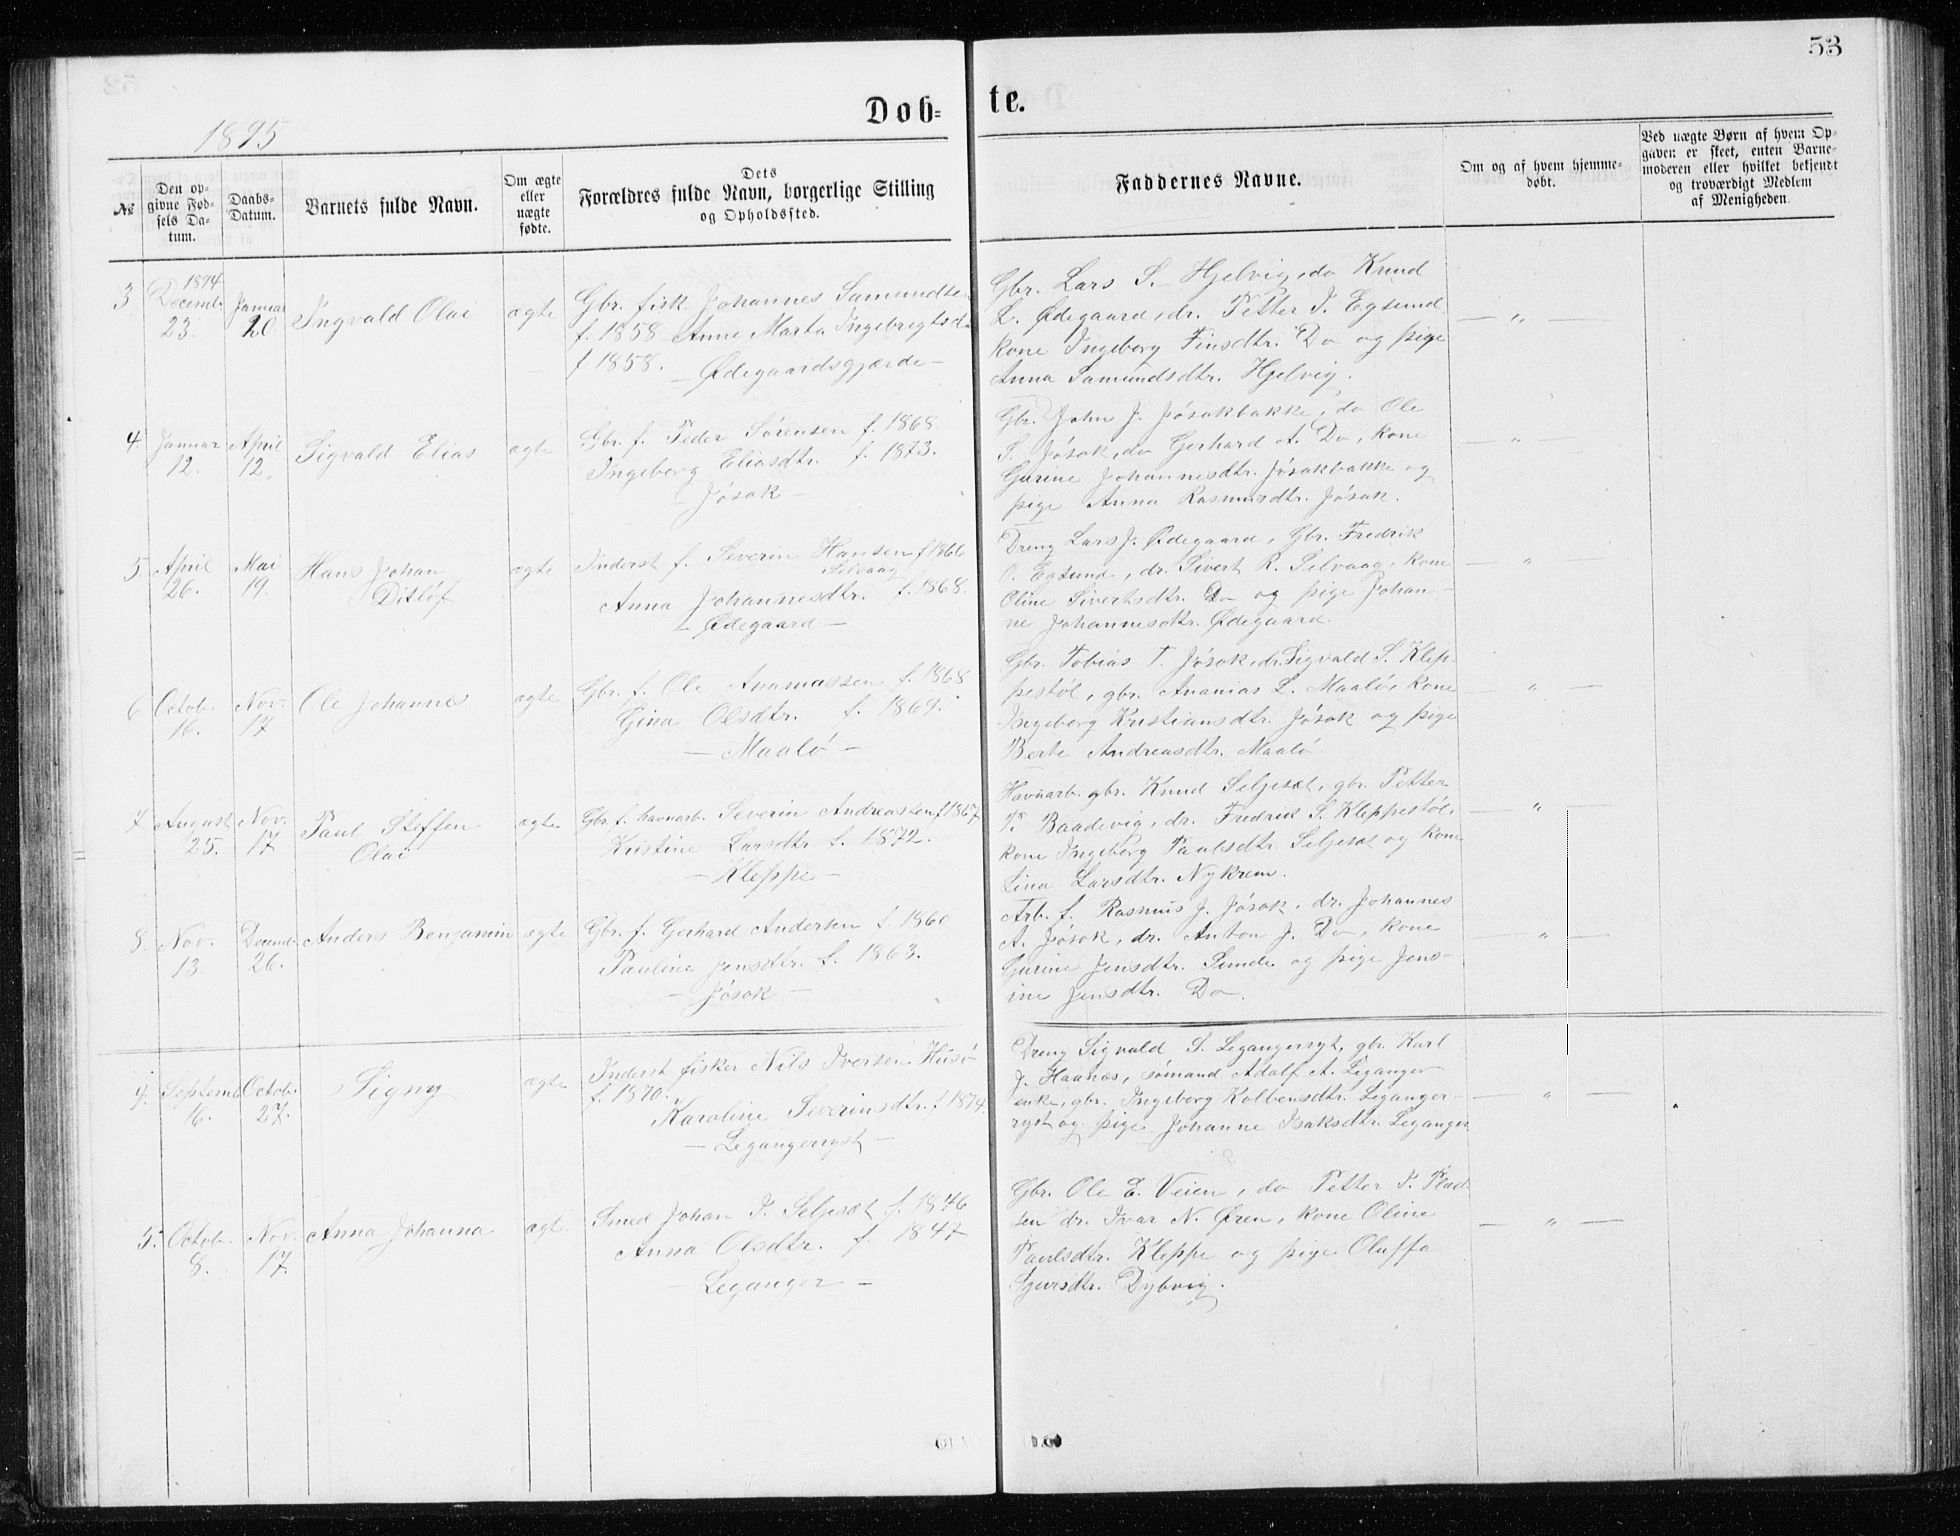 53
Dob=
te.
1895
№
Den op-
givne Fød-
sels Da-
tum.
Daabs-
Datum.
Barnets fulde Navn.
Om ægte
eller
uægte
fødte.
Dets
Forældres fulde Navn, borgerlige Stilling
og Opholdssted.
Faddernes Navne.
Om og af hvem hjemme-
døbt.
Ved uægte Børn af hvem Op-
gaven er skeet, enten Barne-
moderen eller hvilket bekjendt
og troværdigt Medlem
af Menigheden.
3
1894
Decemb.
23.
Januar
20.
Ingvald Olai
ægte
Gbr. fisk. Johannes Samundse
f. 1858 Anne Marta Ingebrigtsd
f 1858.
— Ødegaardsgjærde —
Gbr. Lars S. Hjelvig, do Knud
L. Ødegaard, dr. Petter J. Egsund
kone Ingeborg Finsdtr. Do og pige
Anna Samundsdtr. Hjelvig.
— „ —
4.
Januar
12.
April
12.
Sigvald Elias
ægte
Gbr. f. Peder Sørensen f. 1868.
Ingeborg Eliasdtr. f. 1873.
— Jøsok —
Gbr. John J. Jøsokbakke, do Ole
S. Jøsok, do Gerhard A. Do, kone
Gurine Johannesdtr. Jøsokbakke og
pige Anna Rasmusdtr. Jøsok.
— „ —
5.
April
26.
Mai
19.
Hans Johan
Ditløf
ægte
Inderst f. Severin Hansen f 1866
Selvaag
Anna Johannesdtr. f. 1868.
— Ødegaard —
Dreng Lars J. Ødegaard, Gbr. Fredrik
O. Egsund, dr. Sivert R. Selvaag, kone
Oline Sivertsdtr. Do og pige Johan-
ne Johannesdtr. Ødegaard.
— „ —
6
Octob.
16.
Nov.
17
Ole Johannes
ægte
Gbr. f. Ole Ananiassen f. 1868
Gina Olsdtr. f. 1869.
— Maalø —
Gbr. Tobias T. Jøsok, dr. Sigvald S. Klep-
pestøl, gbr. Ananias L. Maalø, kone
Ingeborg Kristiansdtr. Jøsok og pige
Berte Andreasdtr. Maalø.
— „ —
7
August
25.
Nov.
17
Paul Steffen
Olai
ægte
Gbr. f. havnarb. Severin Andreassen f 1867
Kristine Larsdtr f. 1872.
— Kleppe —
Havnarb. gbr. Knud Seljeset, gbr. Petter
P. Baadevig, dr. Fredrik S. Kleppestøl,
kone Ingeborg Paulsdtr. Seljeset og kone
Lina Larsdtr. Nykrem.
— „ —
8.
Nov.
13.
Decemb.
26.
Anders Benjamin
ægte
Gbr. f. Gerhard Andersen f. 1860
Pauline Jensdtr. f. 1863.
— Jøsok —
Arb. f. Rasmus J. Jøsok, dr. Johannes
A. Jøsok, dr. Anton J. Do, kone
Gurine Jensdtr. Sunde og pige Jens-
ine Jensdtr. Do.
— „ —
4.
Septemb
16.
Octob.
27.
Signy
ægte
Inderst fisker Nils Iversen Husø
f. 1870.
Karoline Severinsdtr. f 1874.
— Legangerryst —
Dreng Sigvald S. Legangerryt, gbr. Karl
J. Haanæs, sømand Adolf A. Leganger
enke, gbr. Ingeborg Kolbensdtr. Leganger-
ryst og pige Johanne Isaksdtr. Leganger
— „ —
5.
Octob.
8.
Nov.
17.
Anna Johanna
ægte
Smed Johan I. Seljeset f. 1846
Anna Olsdtr. f. 1847
— Leganger —
Gbr. Ole E. Veien, do Petter P. Plad-
sen dr. Ivar N. Øren, kone Oline
Paulsdtr. Kleppe og pige Oluffa
Sjursdtr. Dybvig.
— „ —